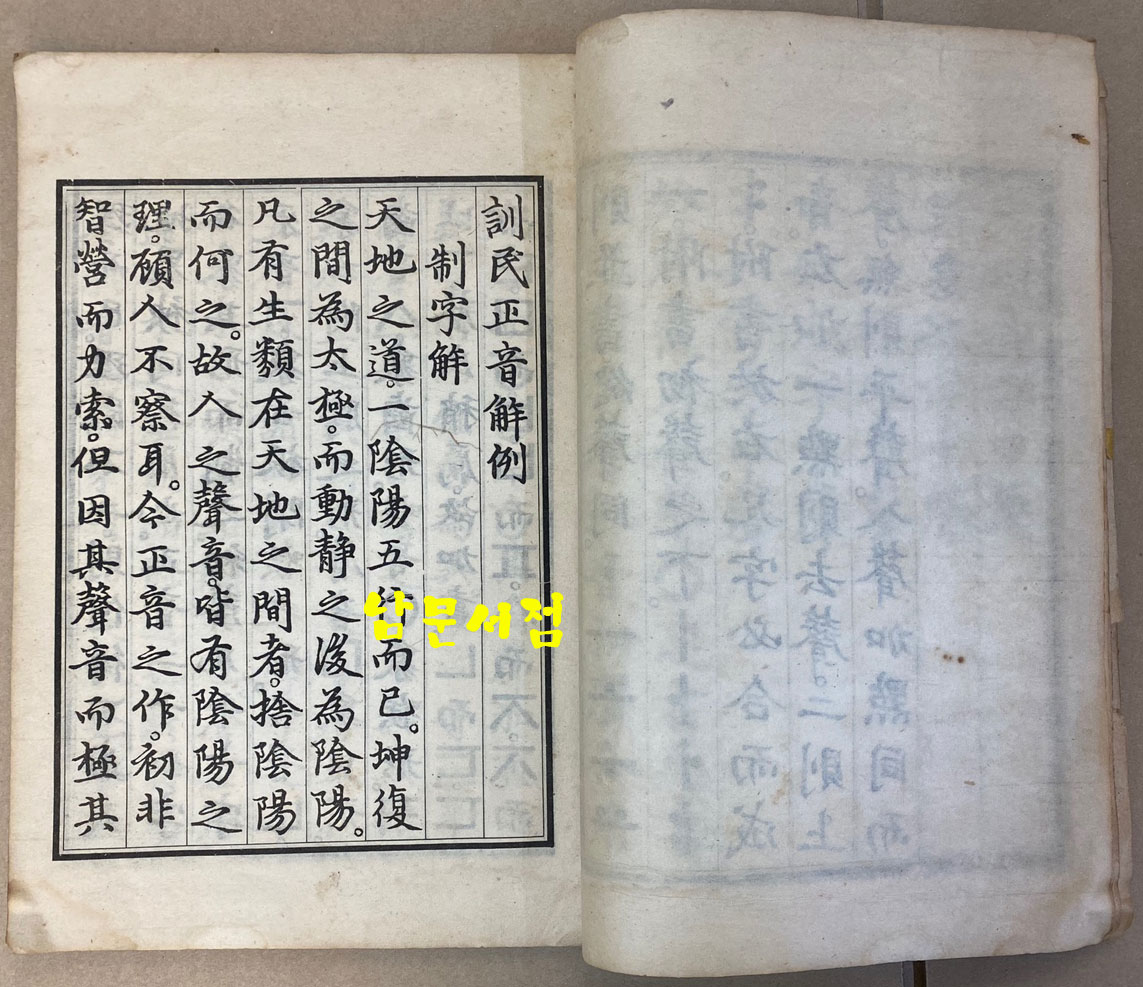 訓民正音解例
制字解
天地之道。一陰陽五行而已。坤復
之間為太極。而動靜之後為陰陽。
凡有生類在天地之間者。捨陰陽
而何之。故人之聲音。皆有陰陽之
理。顧人不察耳。今正音之作。初非
智營而力索。但因其聲音而極其
남문서점